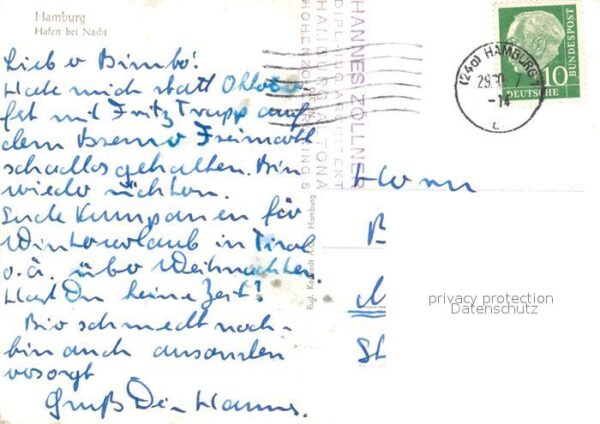 Hamburg
Hafen bei Nacht
Lieber Bimbo!
Habe mich statt Oktober-
fest mit Fritz Trapp auf
dem Bremer Freimarkt
schadlos gehalten. Bin
wieder nüchtern.
Suche Kumpanen für
Winterurlaub in Tirol
o.ä. über Weihnachten.
Hast Du keine Zeit?
Bier schmeckt noch-
bin auch ansonsten
versorgt
Gruß Dein Hannes.
HANNES ZÖLLNER
DIPL. ING. ARCHITEKT
HAMBURG ALTONA
HOHENZOLLERNRING 5
Rud. Karstadt A.G., Hamburg
Herrn
B
St
(24a) HAMBURG
29.10.
-14
c
DEUTSCHE
BUNDESPOST
10
privacy protection
Datenschutz